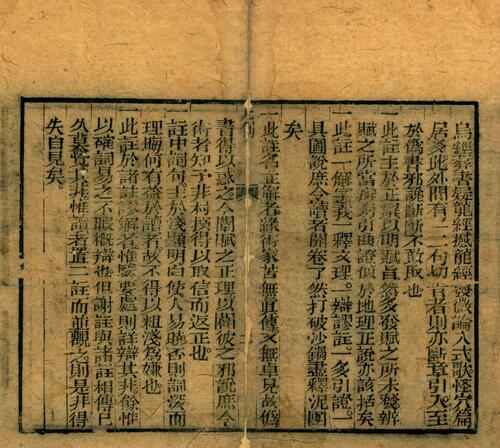 烏經葬書疑龍經撼龍經發微論入式歌怪穴篇
居多此外間有一二句切肯者則亦斷章引入至
於偽書邪說斷不敢取也
一此註主於正以明賦旨然多發賦之所未發辨
賦之所當解旁引曲證似於地理正說亦該括矣
一此註一解字義一釋文理一辯謬註一多引證一
具圖說庶令讀者開卷了然打破沙鍋盡釋泥團
矣
一此註名正解者緣術家苦無眞傳又無卓見故偽
書得以惑之今闡賦之正理以闢彼之邪說庶令
術者知予非杜撰得以取信而返正也
一註中詞句主於淺顯明白使人易曉否則詞深而
理晦何有益於讀者故不得以粗淺為嫌也
一此註於諸註謬解者惟緊要處則註辯其非餘惟
以確詞易之不暇概辯也但謝註與諸註相傳已
久莫覺其非惟讀者置二註而並觀之則是非得
失自見矣